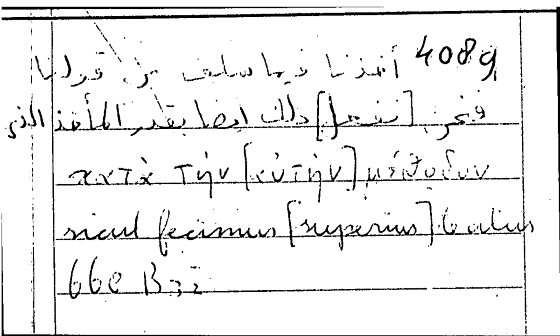 4089 أخذنا فيما سلف من قولنا
فنحن [نفعل] ذلك ايضا بقدر المأخذ الذي
κατὰ τὴν [αὐτὴν] μέθοδον
sicut fecimus [superius]
66e B33